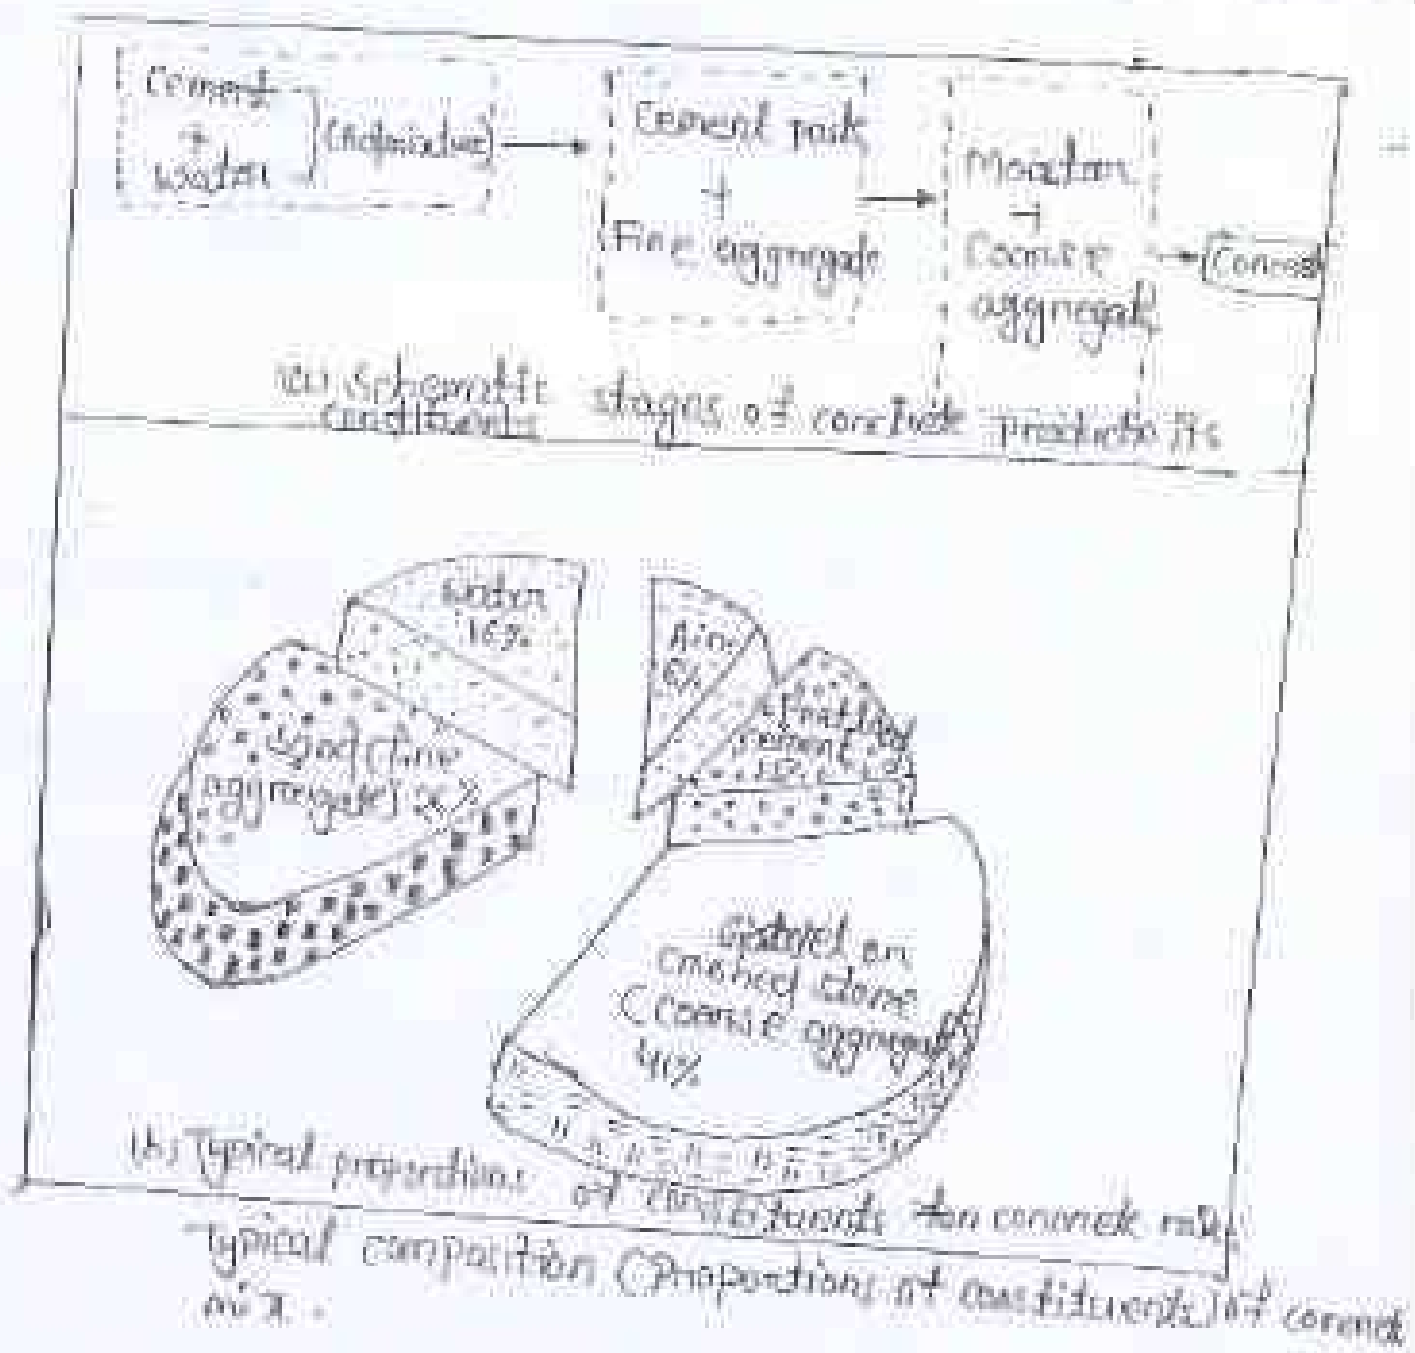 Cement
+
water
(Admixture)
Cement paste
+
Fine aggregate
Moartar
+
Coarse
aggregate
(a) Schematic stages of concrete production
constituents
water
16%
Air
6%
cement
Sand (fine
aggregate)
Gravel or
crushed stone
(Coarse aggregate
41%
(b) Typical proportions of constituents for concrete
Typical composition (Proportions of constituents) of
mix.